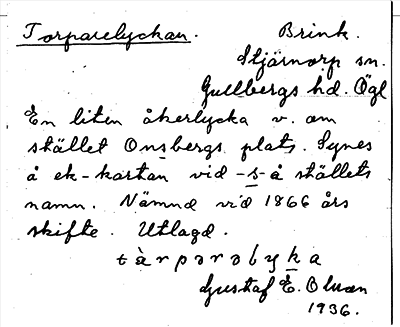 Torparelyckan. Brink.
Stjärnorp sn.
Gullbergs hd. Ögl
En liten åkerlycka v. om
stället Onsbergs plats. Synes
å ek-kartan vid -s- å ställets
namn. Nämnd vid 1866 års
skifte. Utlagd.
tàrpərəlyka
Gustaf E. Olsson
1936.